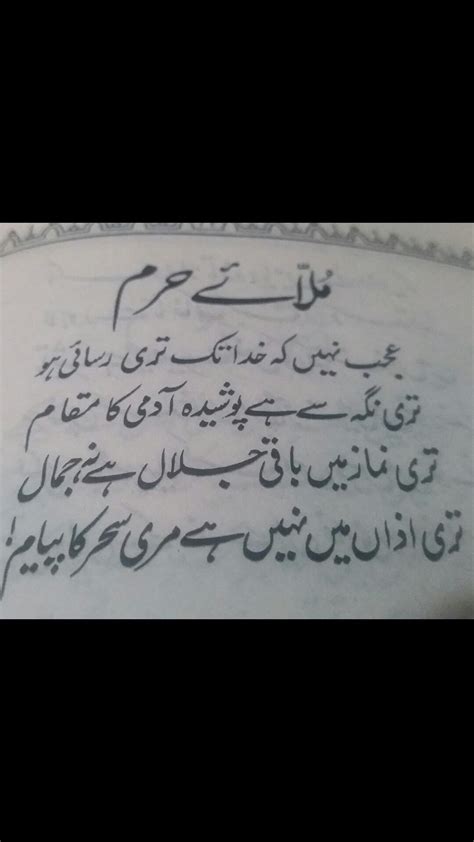 مُلّائے حرم
عجب نہیں کہ خدا تک تری رسائی ہو
تری نگہ سے ہے پوشیدہ آدمی کا مقام
تری نماز میں باقی جلال ہے نہ جمال
تری اذاں میں نہیں ہے مری سحر کا پیام!